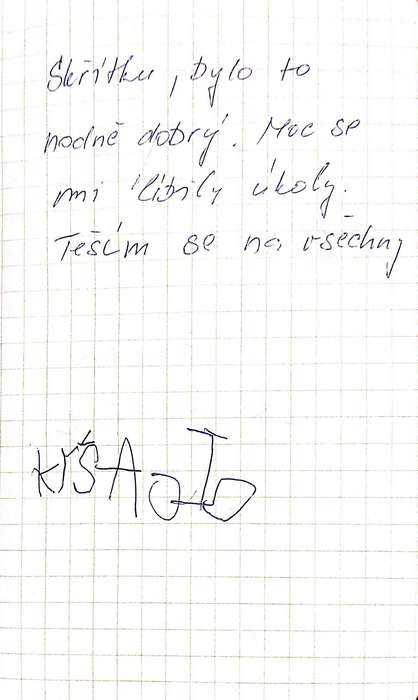 Skřítku, bylo to
hodně dobrý. Moc se
mi líbily úkoly.
Těším se na všechny